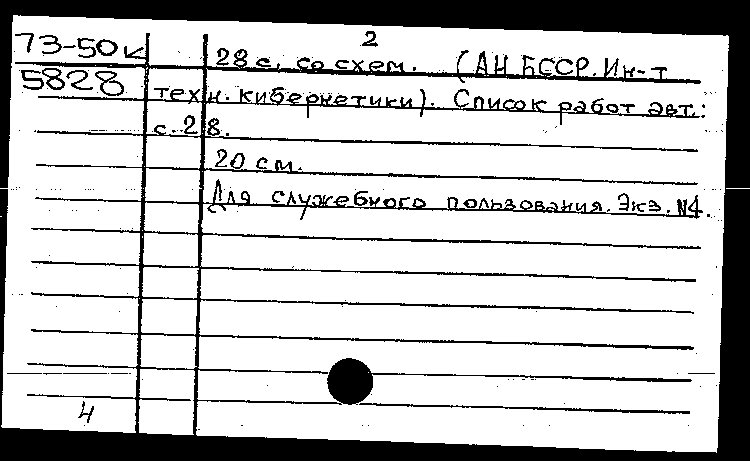 2
73-50к 28 с. со схем. (АН БССР. Ин-т
5828 техн. кибернетики). Список работ авт.:
с. 28.
20 см.
Для служебного пользования. Экз. №4.
4